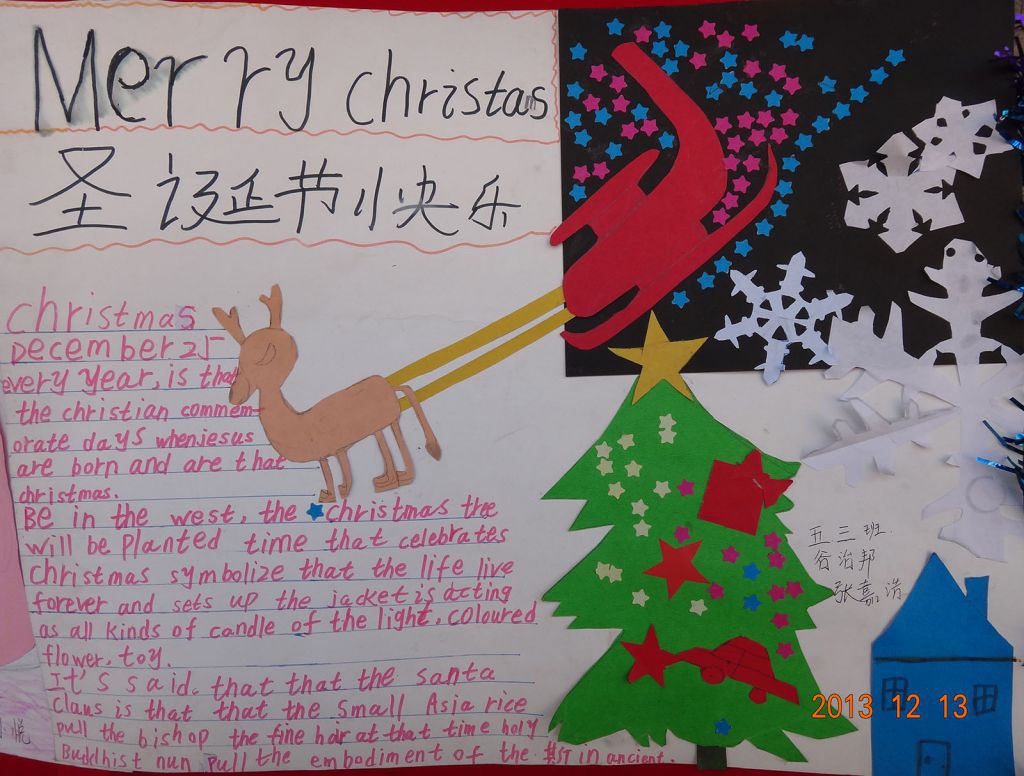 Merry christas
圣诞节快乐
christmas
December 25
every year, is that
the christian commem-
orate days when jesus
are born and are that
christmas.
Be in the west, the christmas tree
will be planted time that celebrates
christmas symbolize that the life live
forever and sets up the jacket is acting
as all kinds of candle of the light, coloured
flower, toy.
It's said. that that the santa
claus is that that the small Asia rice
pull the bishop the fine hair at that time holy
Buddhist nun pull the embodiment of the in ancient.
五三班
谷治邦
张嘉浩
2013 12 13
悦